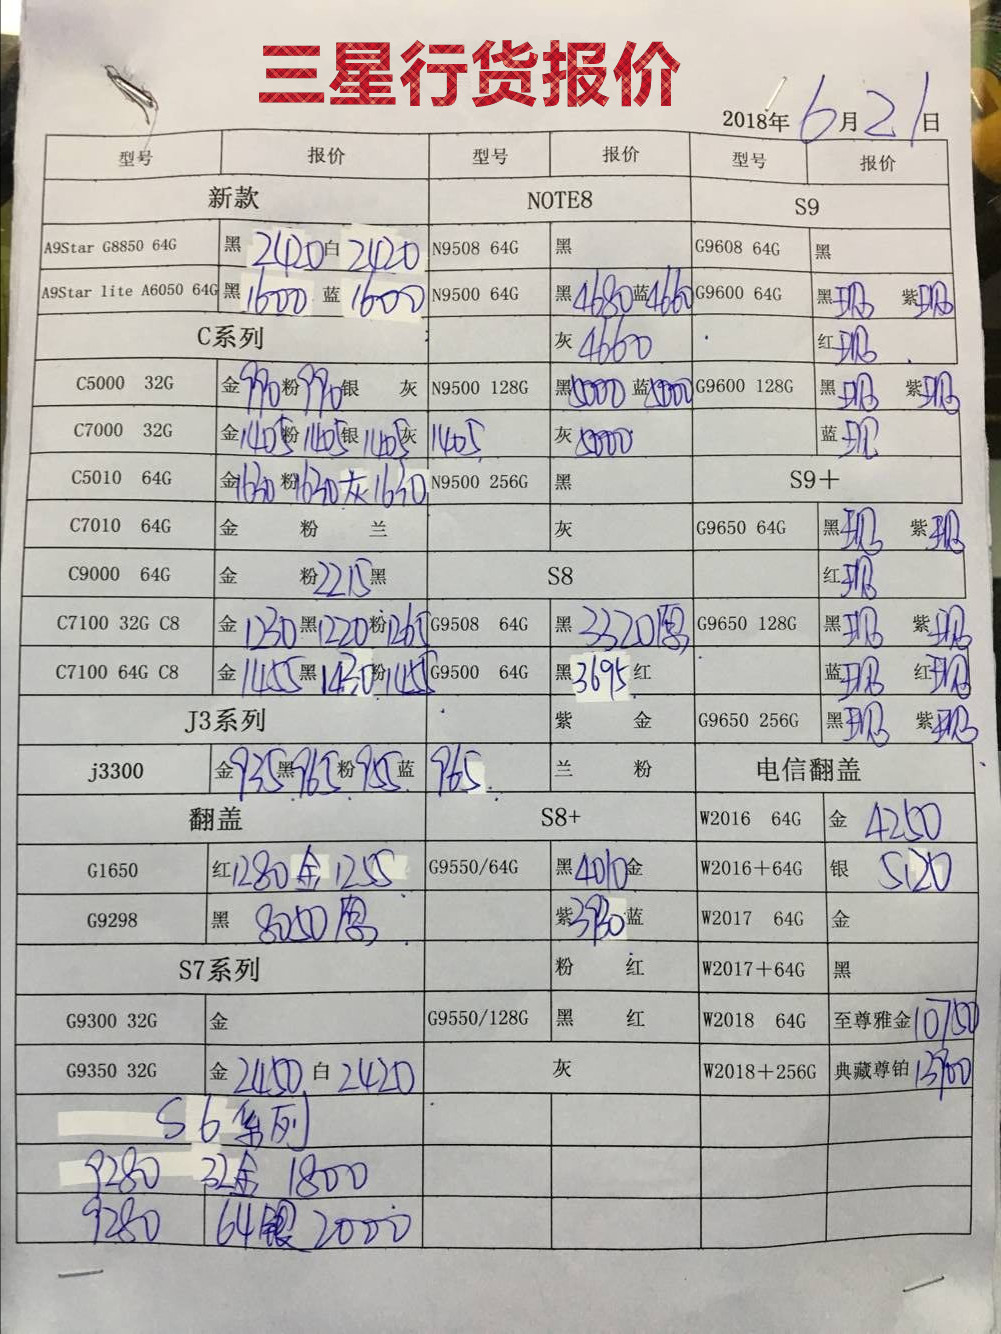 三星行货报价
2018年6月21日
型号 报价 型号 报价 型号 报价
新款 NOTE8 S9
A9Star G8850 64G 黑 2420 白 2420 N9508 64G 黑 G9608 64G 黑
A9Star lite A6050 64G 黑 1600 蓝 1600 N9500 64G 黑 4680 蓝 4660 G9600 64G 黑 现 紫 现
C系列 灰 4660 红 现
C5000 32G 金 990 粉 990 银 灰 N9500 128G 黑 5000 蓝 5000 G9600 128G 黑 现 紫 现
C7000 32G 金 1405 粉 1405 银 1405 灰 1405 灰 5000 蓝 现
C5010 64G 金 1630 粉 1630 灰 1630 N9500 256G 黑 S9+
C7010 64G 金 粉 兰 灰 G9650 64G 黑 现 紫 现
C9000 64G 金 粉 2215 黑 S8 红 现
C7100 32G C8 金 1230 黑 1220 粉 1265 G9508 64G 黑 3320 G9650 128G 黑 现 紫 现
C7100 64G C8 金 1455 黑 1430 粉 1455 G9500 64G 黑 3695 红 蓝 现 红 现
J3系列 紫 金 G9650 256G 黑 现 紫 现
j3300 金 935 黑 965 粉 955 蓝 965 兰 粉 电信翻盖
翻盖 S8+ W2016 64G 金 4250
G1650 红 1280 金 1255 G9550/64G 黑 4010 金 W2016+64G 银 5120
G9298 黑 8050 紫 3930 蓝 W2017 64G 金
S7系列 粉 红 W2017+64G 黑
G9300 32G 金 G9550/128G 黑 红 W2018 64G 至尊雅金 10750
G9350 32G 金 2450 白 2420 灰 W2018+256G 典藏尊铂 13900
S6系列
9280 32金 1800
9280 64银 2000